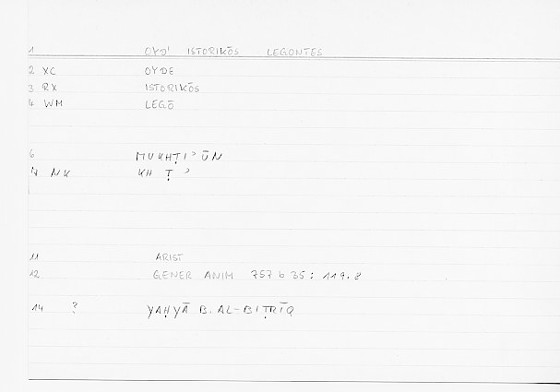 1 OYD' ISTORIKŌS LEGONTES
2 XC OYDE
3 RX ISTORIKŌS
4 WM LEGŌ
6 MUKHṬIʾŪN
7 NK KH Ṭ ʾ
11 ARIST
12 GENER ANIM 757 b 35 : 119.8
14 ? YAḤYĀ B. AL-BIṬRĪQ